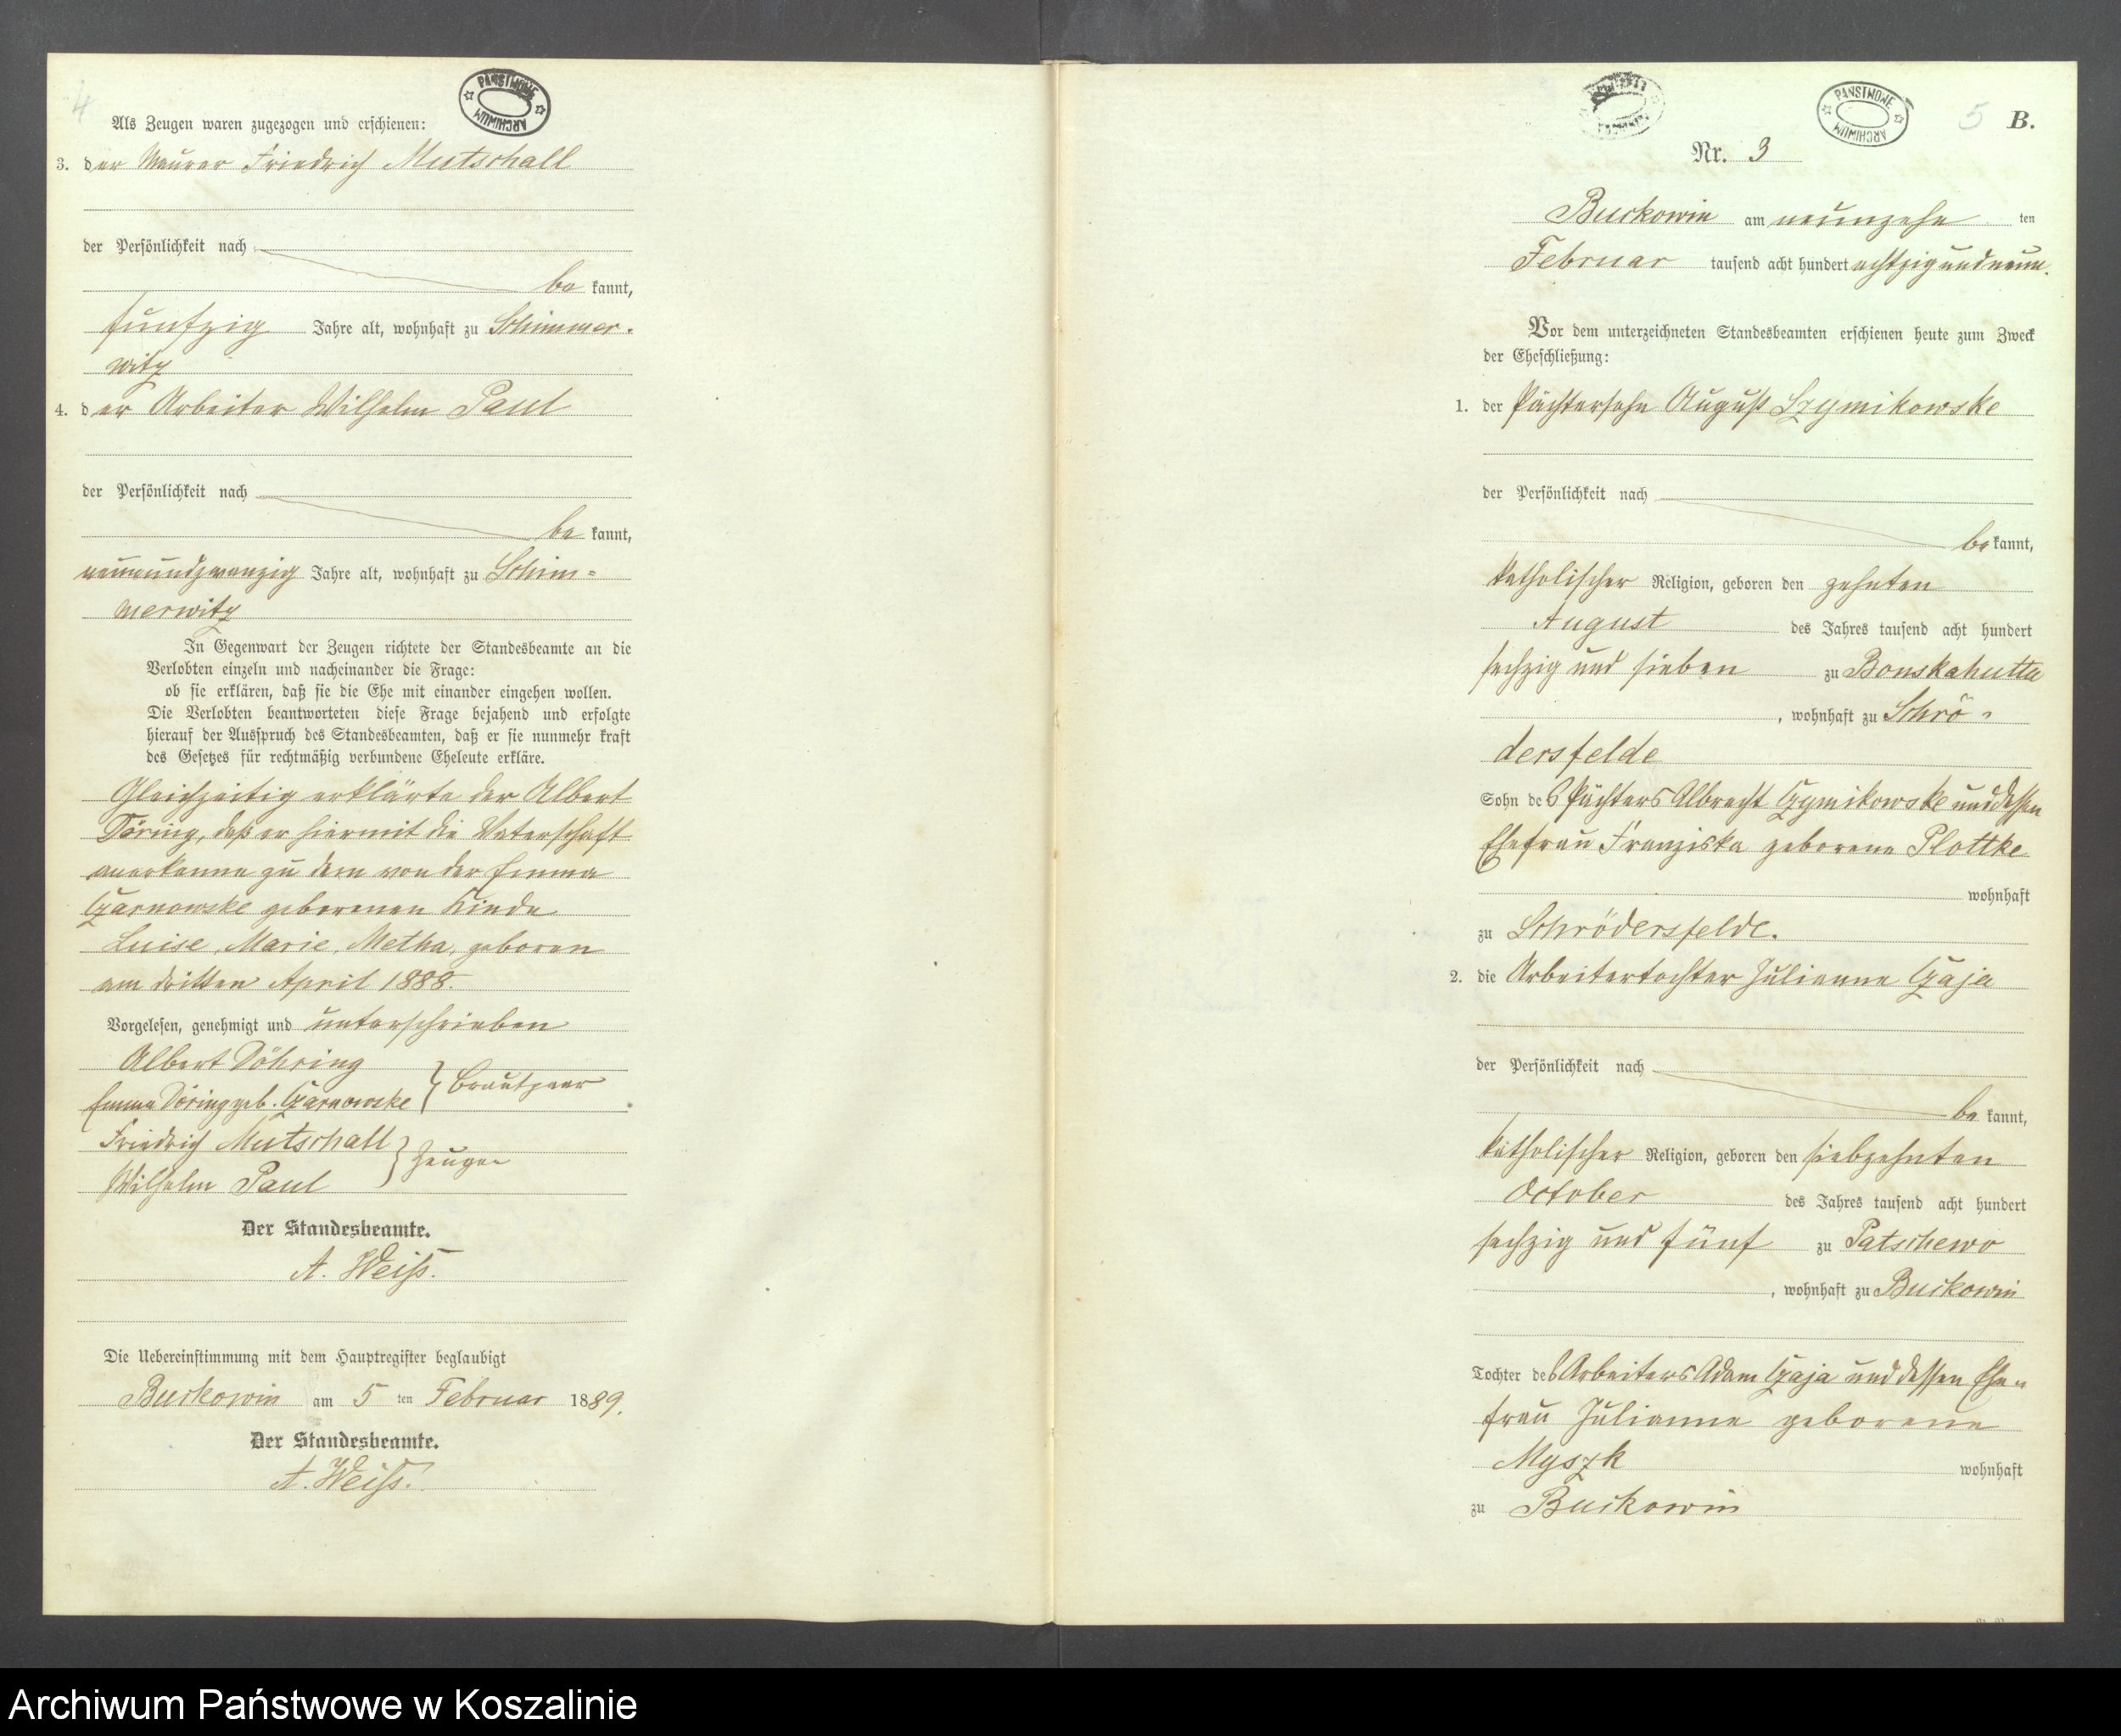 4
PAŃSTWOWE ARCHIWUM
Als Zeugen waren zugezogen und erschienen:
3. der Maurer Friedrich Mutschall
der Persönlichkeit nach
be kannt,
fünfzig Jahre alt, wohnhaft zu Schimmer-
witz
4. der Arbeiter Wilhelm Paul
der Persönlichkeit nach
be kannt,
neunundzwanzig Jahre alt, wohnhaft zu Schim=
merwitz
In Gegenwart der Zeugen richtete der Standesbeamte an die
Verlobten einzeln und nacheinander die Frage:
ob sie erklären, daß sie die Ehe mit einander eingehen wollen.
Die Verlobten beantworteten diese Frage bejahend und erfolgte
hierauf der Ausspruch des Standesbeamten, daß er sie nunmehr kraft
des Gesetzes für rechtmäßig verbundene Eheleute erkläre.
Gleichzeitig erklärte der Albert
Döring, daß er hiermit die Vaterschaft
anerkenne zu dem von der Emma
Czarnowske geborenen Kinde
Luise, Marie, Metha, geboren
am dritten April 1888.
Vorgelesen, genehmigt und unterschrieben
Albert Döhring
Emma Döring geb. Czarnowske } Brautpaar
Friedrich Mutschall
Wilhelm Paul } Zeugen
Der Standesbeamte.
A. Weiß.
Die Uebereinstimmung mit dem Hauptregister beglaubigt
Buckowin am 5 ten Februar 1889.
Der Standesbeamte.
A. Weiß.
PAŃSTWOWE ARCHIWUM
5 B.
Nr. 3
Buckowin am neunzehn ten
Februar tausend acht hundert achtzig und neun.
Vor dem unterzeichneten Standesbeamten erschienen heute zum Zweck
der Eheschließung:
1. der Pächtersohn August Czymikowske
der Persönlichkeit nach
be kannt,
katholischer Religion, geboren den zehnten
August des Jahres tausend acht hundert
sechzig und sieben zu Bonskahutta
, wohnhaft zu Schrö-
dersfelde
Sohn des Pächters Albrecht Czymikowske und dessen
Ehefrau Franziska geborene Plottke
wohnhaft
zu Schrödersfelde.
2. die Arbeitertochter Julianna Czaja
der Persönlichkeit nach
be kannt,
katholischer Religion, geboren den siebzehnten
October des Jahres tausend acht hundert
sechzig und fünf zu Patschewo
, wohnhaft zu Buckowin
Tochter des Arbeiters Adam Czaja und dessen Ehe=
frau Julianna geborene
Myszk wohnhaft
zu Buckowin
Archiwum Państwowe w Koszalinie